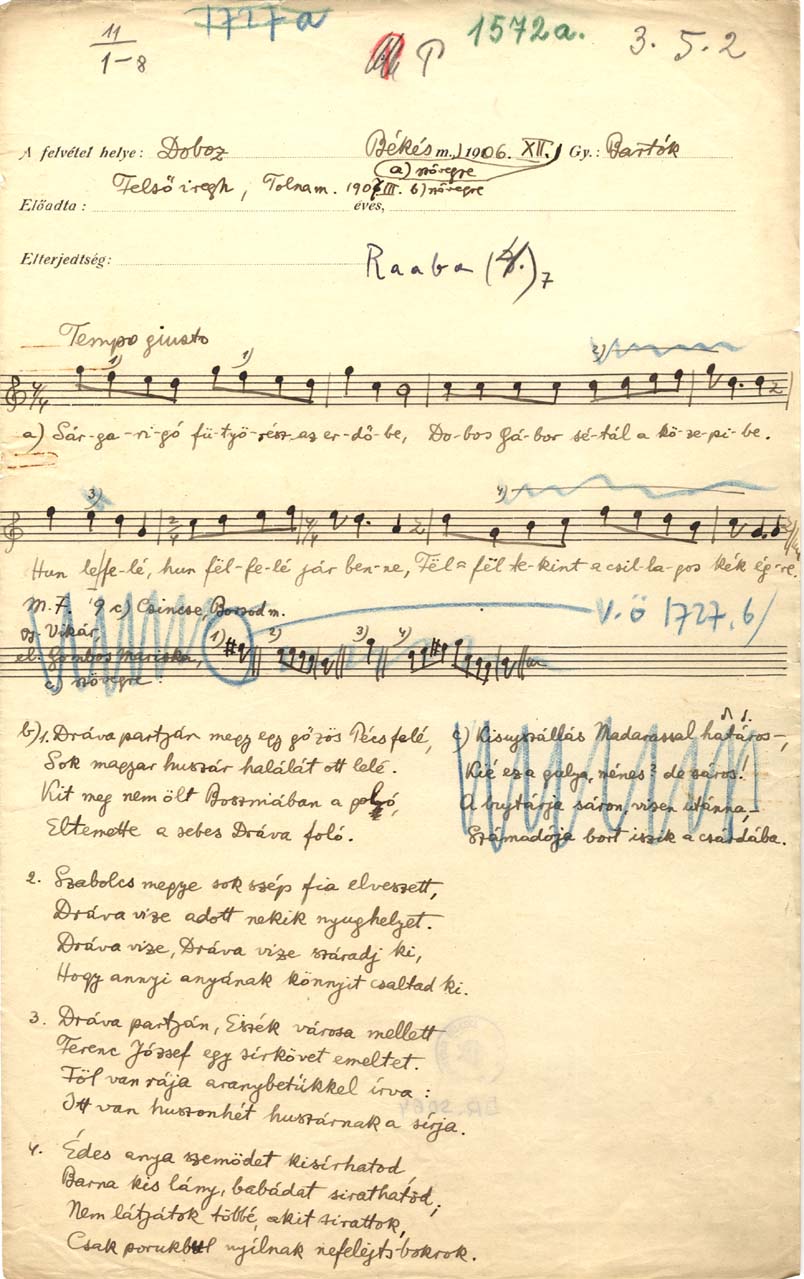 11
1-8
1727a
P
1572a.
3.5.2
A felvétel helye: Doboz Békés m., 1906. XII. Gy.: Bartók
a) szövegre
Felső iregh, Tolnam. 1907 III. b) szövegre
Előadta: éves,
Elterjedtség: Raaba 7
Tempo giusto
1) 1) 2)
a) Sár-ga-ri-gó fü-työ-rész az er-dő-be, Do-bos Gá-bor sé-tál a kö-ze-pi-be.
3) 4)
Hun leffe-lé, hun fël-fe-lé jár ben-ne, Fël-fël te-kint a csil-la-gos kék ég-re.
M.F. c) Csincse, Borsod m.
gy. Vikár,
el. Gombos Mariska,
c) szövegre
V.ö 1727. b/
1) 2) 3) 4)
b) 1. Dráva partján megy egy gőzös Pécs felé,
Sok magyar huszár halálát ott lelé.
Kit meg nem ölt Boszniában a golyó,
Eltemette a sebes Dráva foló.
c) Kisujszállás Madarassal határos-,
Kié ez a gulya, ménes? de sáros!
A bujtárja sáron, vizen utánna,
Számadója bort iszik a csárdába.
2. Szabolcs megye sok szép fia elveszett,
Dráva vize adott nekik nyughelyet.
Dráva vize, Dráva vize száradj ki,
Hogy annyi anyának könnyit csaltad ki.
3. Dráva partján, Eszék városa mellett
Ferenc József egy sírkövet emeltet.
Föl van rája aranybetűkkel írva:
Itt van huszonhét huszárnak a sírja.
4. Édes anya szemödet kisírhatod
Barna kis lány, babádat sirathatod;
Nem látjátok többé, akit sirattok,
Csak porukbul nyílnak nefelejtsbokrok.